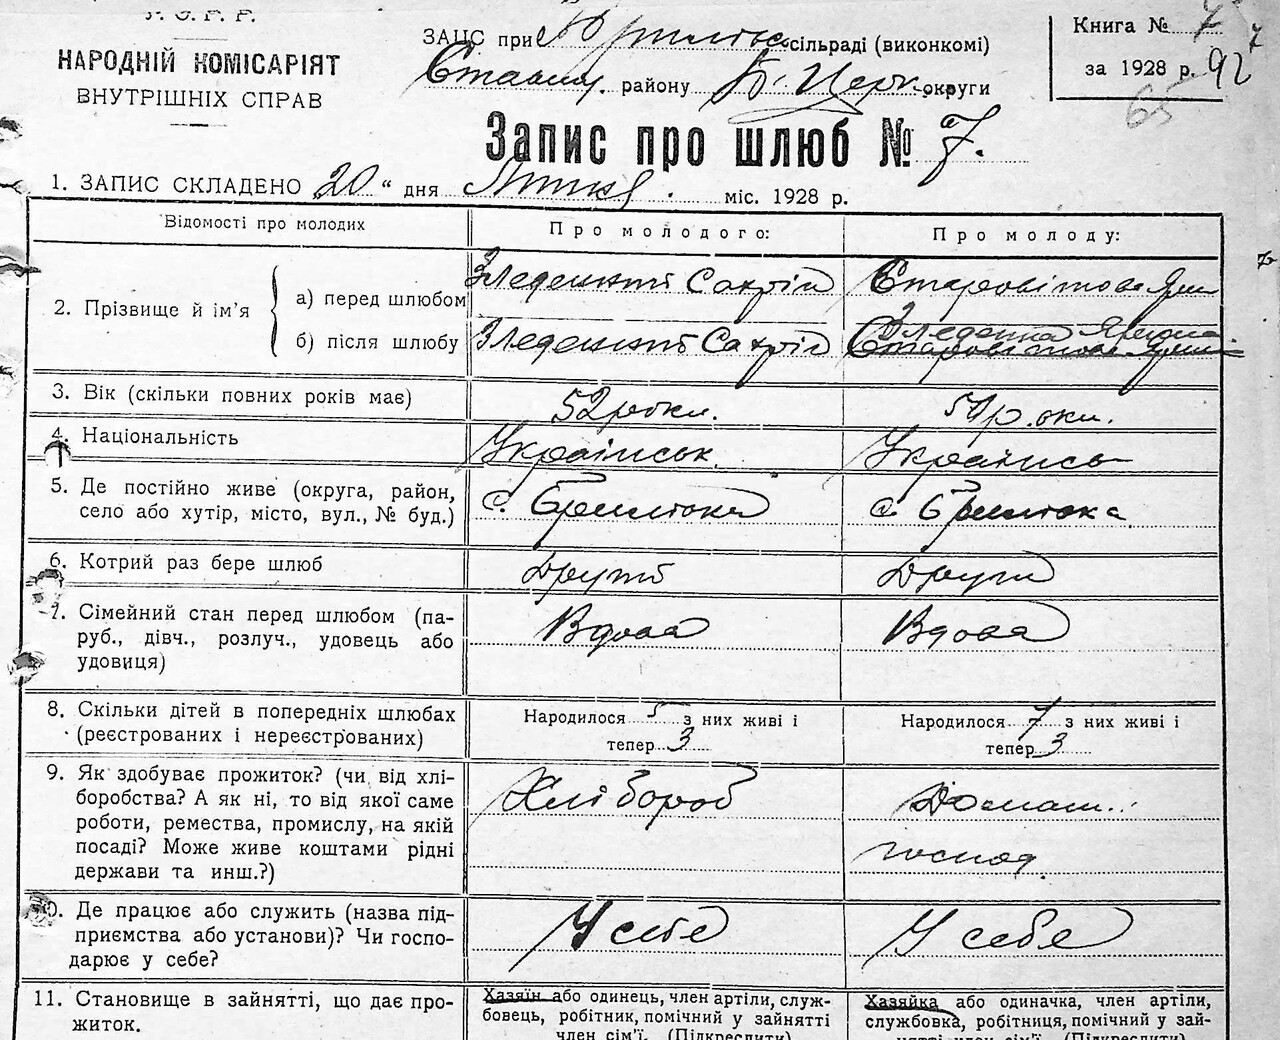 У. С. Р. Р.
НАРОДНІЙ КОМІСАРІЯТ
ВНУТРІШНІХ СПРАВ
ЗАЦС при сільраді (виконкомі)
Ставищ. району Б. Церк. округи
Книга № 7
за 1928 р. 92
65
7
Запис про шлюб № 7.
1. ЗАПИС СКЛАДЕНО „20“ дня Липня міс. 1928 р.
Відомості про молодих
Про молодого:
Про молоду:
2. Прізвище й ім'я
а) перед шлюбом
Сахрій
б) після шлюбу
Сахрій
3. Вік (скільки повних років має)
52 роки.
роки.
4. Національність
Українськ.
Українськ
5. Де постійно живе (округа, район,
село або хутір, місто, вул., № буд.)
с.
с.
6. Котрий раз бере шлюб
Другий
Другий
7. Сімейний стан перед шлюбом (па-
руб., дівч., розлуч., удовець або
удовиця)
Вдова
Вдова
8. Скільки дітей в попередніх шлюбах
(реєстрованих і нереєстрованих)
Народилося 5 з них живі і
тепер 3
Народилося 7 з них живі і
тепер 3
9. Як здобуває прожиток? (чи від хлі-
боробства? А як ні, то від якої саме
роботи, ремества, промислу, на якій
посаді? Може живе коштами рідні
держави та инш.?)
Хлібороб
Домаш.
господ.
10. Де працює або служить (назва під-
приємства або установи)? Чи госпо-
дарює у себе?
У себе
У себе
11. Становище в зайнятті, що дає про-
житок.
Хазяїн або одинець, член артіли, служ-
бовець, робітник, помічний у зайнятті
член сім'ї. (Підкреслити)
Хазяйка або одиначка, член артіли,
службовка, робітниця, помічний у зай-
нятті член сім'ї. (Підкреслити)